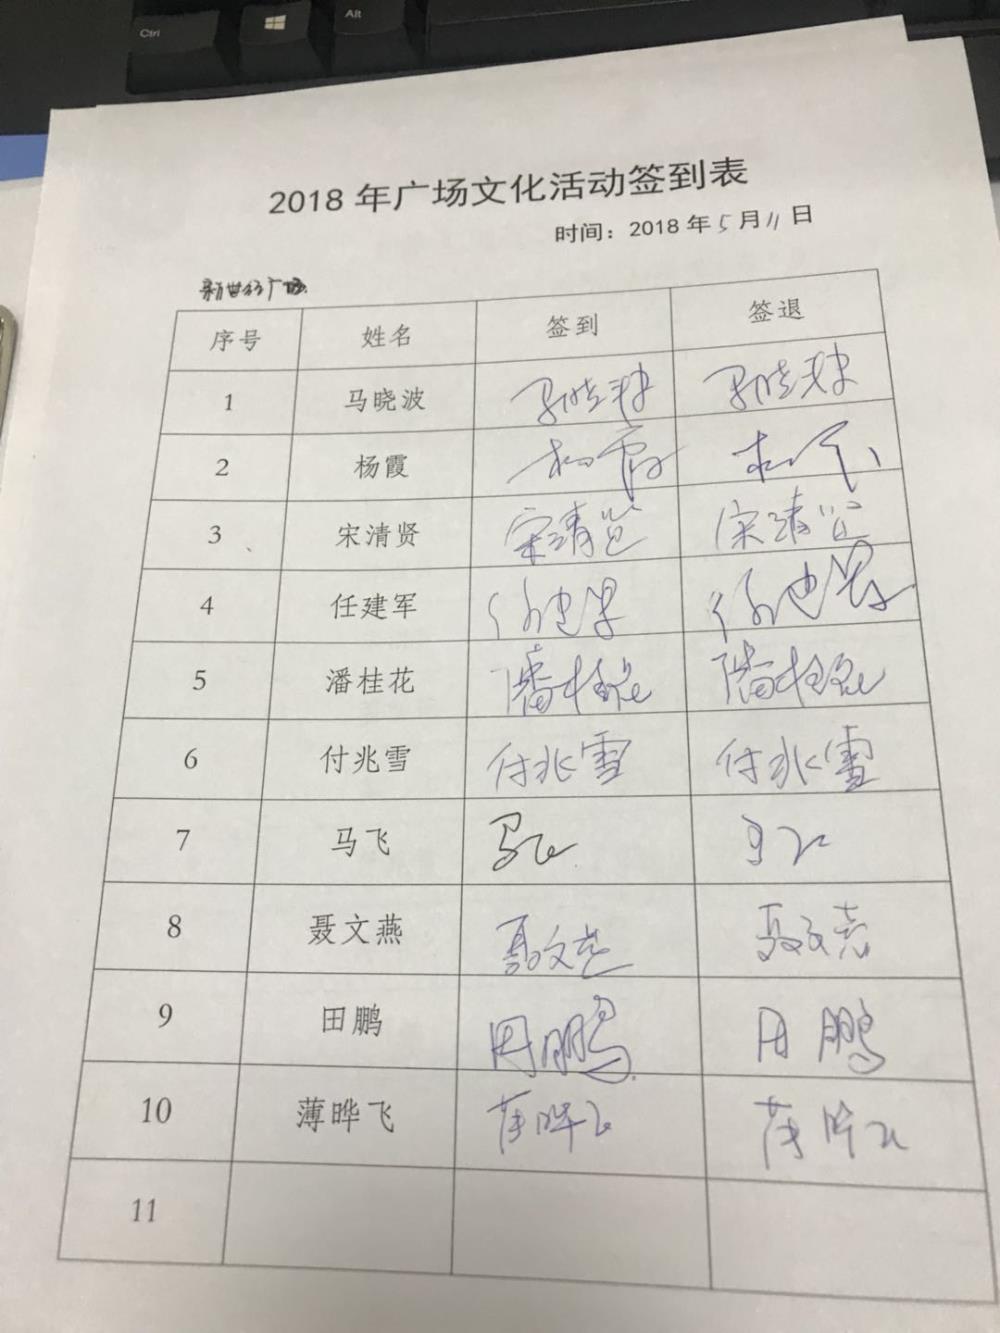 Ctrl Alt
2018 年广场文化活动签到表
时间：2018 年 5 月 11 日
新世纪广场
序号 姓名 签到 签退
1 马晓波
2 杨霞 杨霞 杨霞
3 宋清贤 宋清贤 宋清贤
4 任建军
5 潘桂花 潘桂花 潘桂花
6 付兆雪 付兆雪 付兆雪
7 马飞 马飞 马飞
8 聂文燕 聂文燕 聂文燕
9 田鹏 田鹏 田鹏
10 薄晔飞 薄晔飞 薄晔飞
11